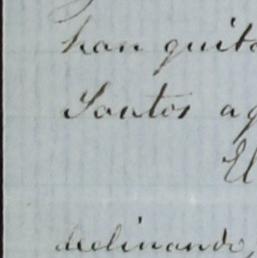 han quita
Santos a
El
declinando,